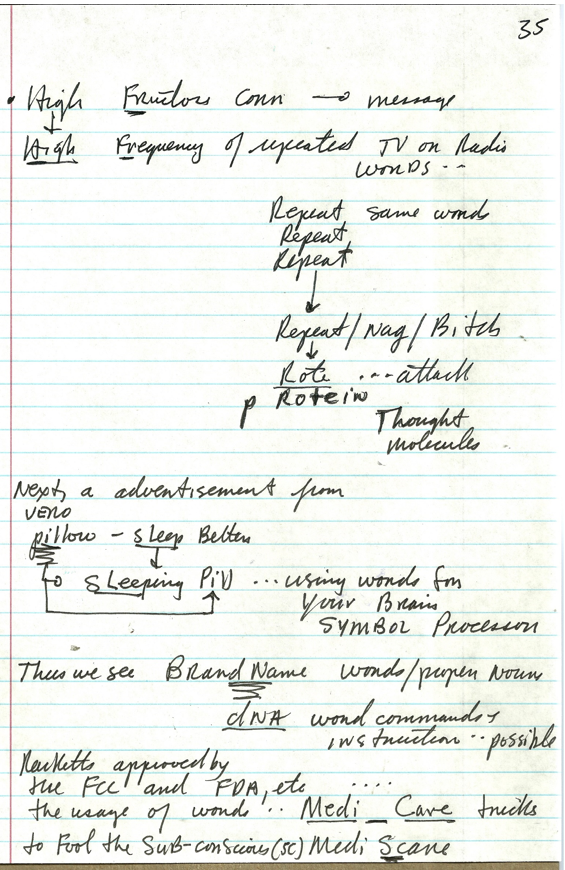 35
• High Fructors Corn → message
High Frequency of repeated TV or Radio
words ..
Repeat same words
Repeat
Repeat
Repeat/Nag/Bitch
Rote ... attack
p Rotein
Thought
molecules
Next, a advertisement from
VERO
pillow - sleep Better
sLeeping Pill ... using words for
Your Brain
SYMBOL Processor
Thus we see Brand Name words/proper Nouns
dNA word commands
instruction .. possible
Racketts approved by
the FCC and FDA, etc ....
the usage of words .. Medi_Care tricks
to Fool the Sub-conscious (sc) Medi Scare